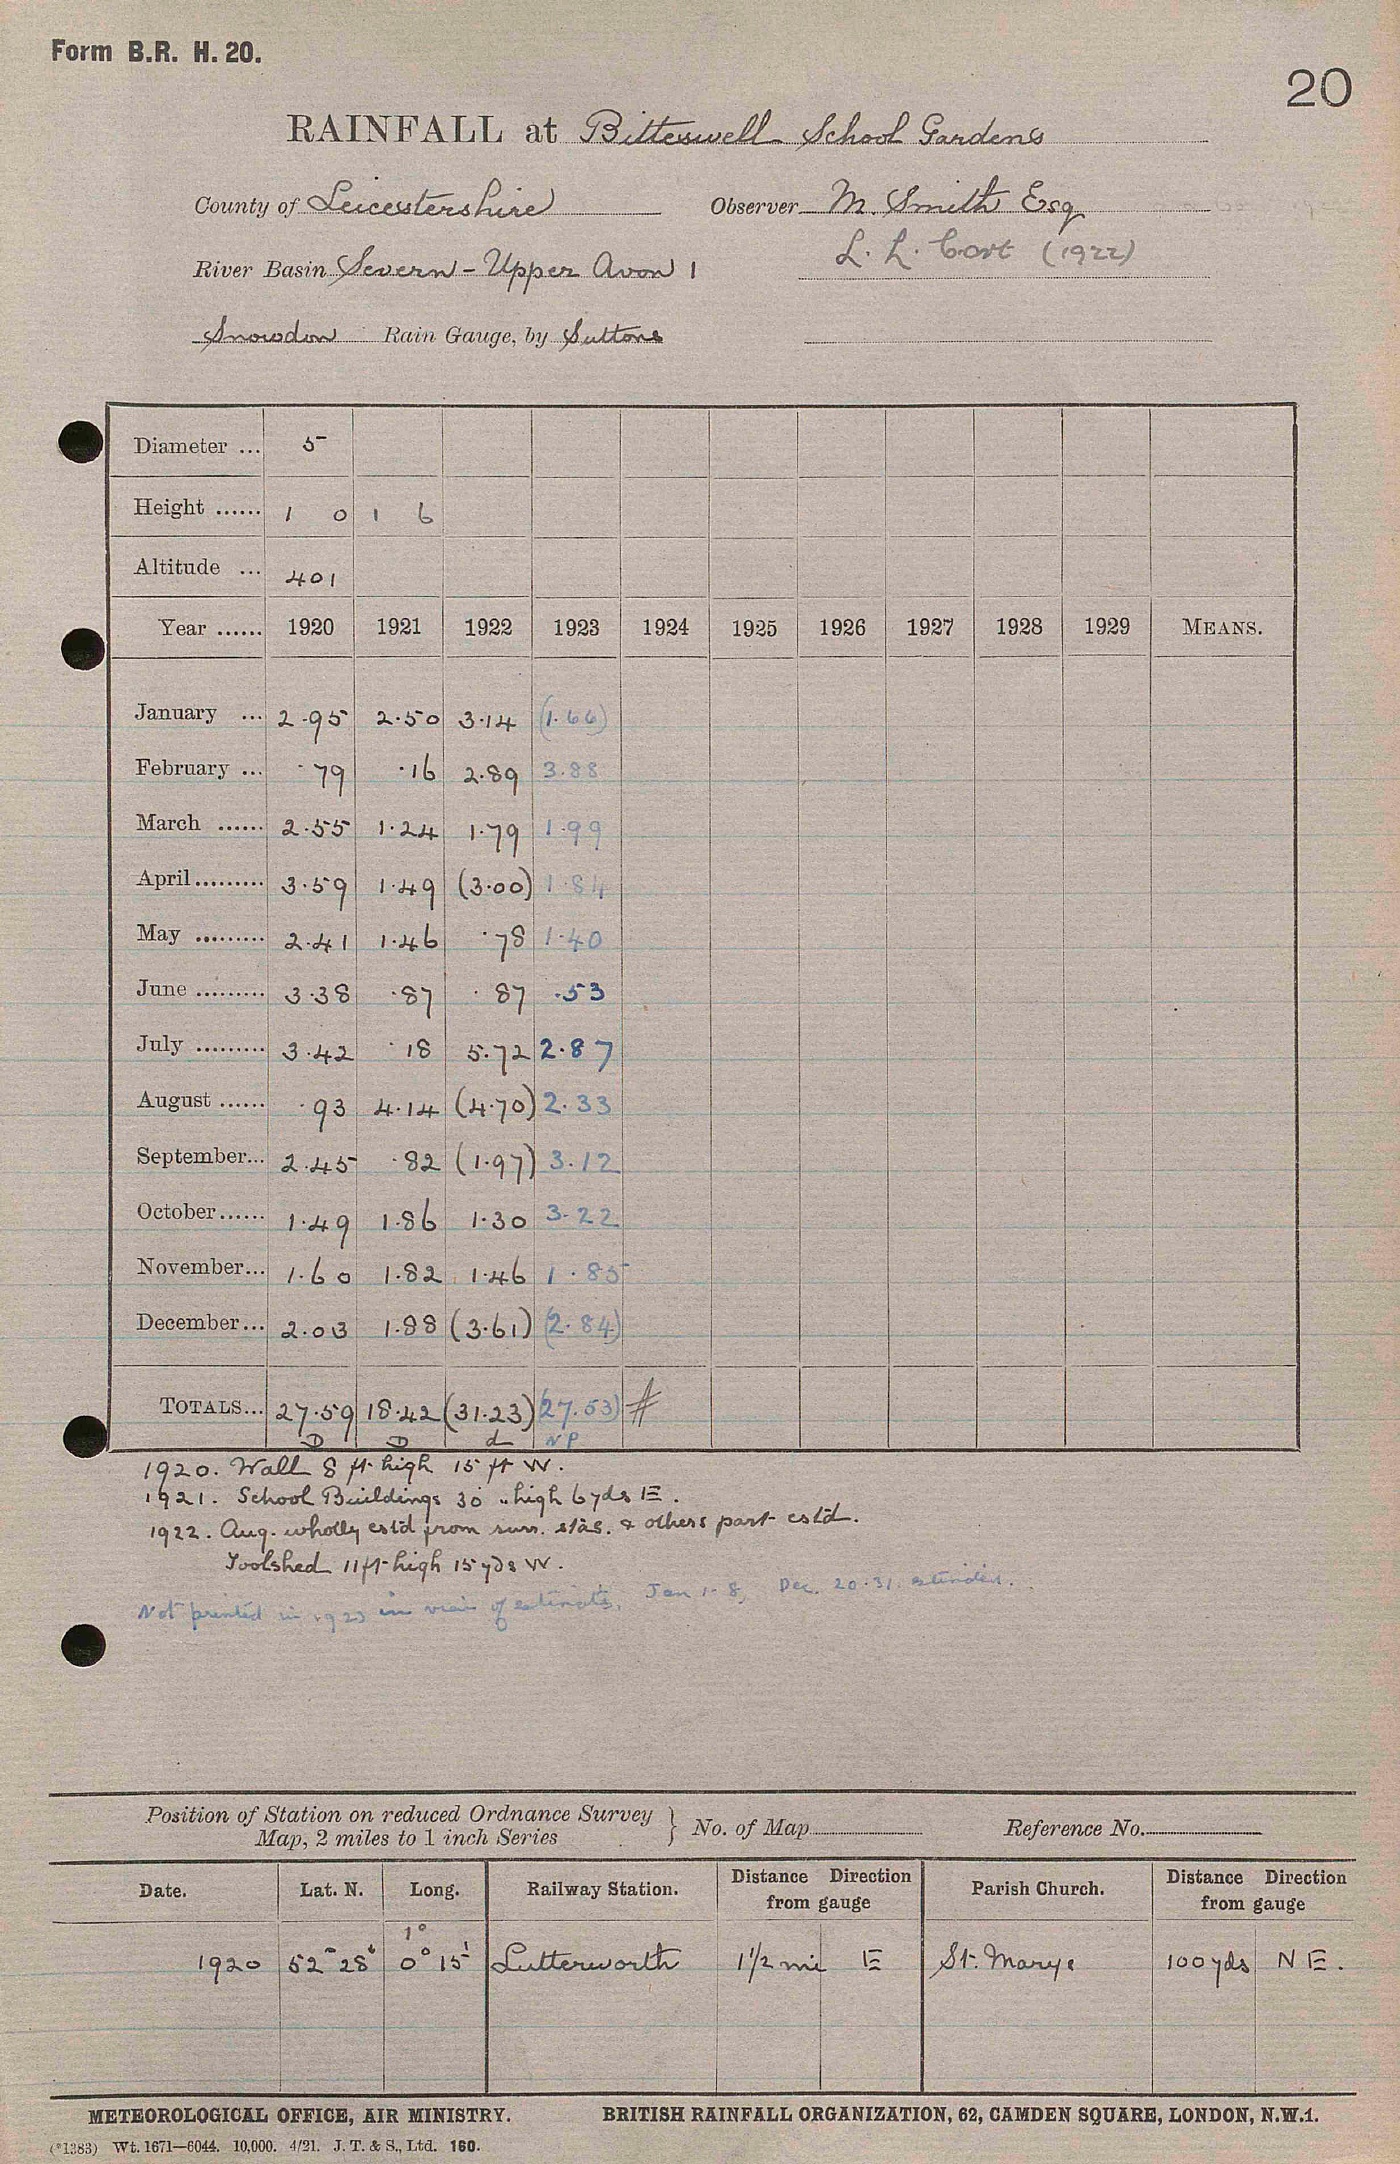 Form B.R. H. 20.
20
RAINFALL at Bitteswell School Gardens
County of Leicestershire Observer M. Smith Esq
L. L. Cort (1922)
River Basin Severn - Upper Avon 1
Snowdon Rain Gauge, by Suttons
Diameter ... 5
Height ...... 1 0 1 6
Altitude ... 401
Year ...... 1920 1921 1922 1923 1924 1925 1926 1927 1928 1929 MEANS.
January ... 2.95 2.50 3.14 (1.66)
February ... .79 .16 2.89 3.88
March ...... 2.55 1.24 1.79 1.99
April......... 3.59 1.49 (3.00) 1.84
May ......... 2.41 1.46 .78 1.40
June ......... 3.38 .87 .87 .53
July ......... 3.42 .18 5.72 2.87
August ...... .93 4.14 (4.70) 2.33
September... 2.45 .82 (1.97) 3.12
October...... 1.49 1.86 1.30 3.22
November... 1.60 1.82 1.46 1.85
December... 2.03 1.88 (3.61) (2.84)
TOTALS... 27.59 18.42 (31.23) (27.53) #
D D d NP
1920. Wall 8 ft high 15 ft W.
1921. School Buildings 30 " high 6 yds E.
1922. Aug. wholly estd from surr. stas. & others part estd.
Toolshed 11 ft high 15 yds W.
Not printed in 1923 in view of estimates. Jan 1-8, Dec. 20-31.
Position of Station on reduced Ordnance Survey
Map, 2 miles to 1 inch Series } No. of Map Reference No.
Date. Lat. N. Long. Railway Station. Distance Direction from gauge Parish Church. Distance Direction from gauge
1°
1920 52° 28' 0° 15' Lutterworth 1 1/2 mi E St. Marys 100 yds N E.
METEOROLOGICAL OFFICE, AIR MINISTRY. BRITISH RAINFALL ORGANIZATION, 62, CAMDEN SQUARE, LONDON, N.W.1.
(*1383) Wt. 1671—6044. 10,000. 4/21. J. T. & S., Ltd. 160.